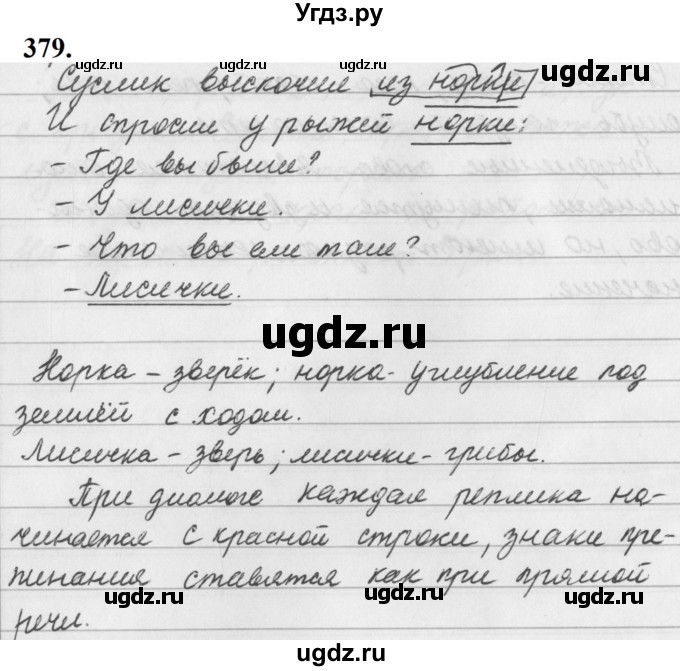 Угдз.ру
379.
Суслик выскочил из норки
И спросил у рыжей норки:
– Где вы были?
– У лисички.
– Что вы ели там?
– Лисички.
Норка – зверёк; норка - углубление под
землёй с ходом.
Лисичка – зверь; лисички - грибы.
При диалоге каждая реплика на-
чинается с красной строки, знаки пре-
пинания ставятся как при прямой
речи.
ugdz.ru
ugdz.ru
ugdz.ru
ugdz.ru
ugdz.ru
ugdz.ru
ugdz.ru
ugdz.ru
ugdz.ru
ugdz.ru